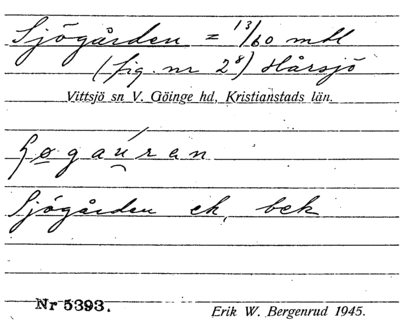 Sjögården = 13/60 mtl
(fig. nr 28) Hårsjö
Vittsjö sn V. Göinge hd, Kristianstads län.
ʃøgaúran
Sjögården ek, bek
Nr 5393.
Erik W. Bergenrud 1945.